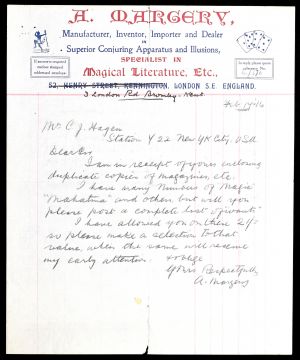 A. MARGERY,
Manufacturer, Inventor, Importer and Dealer
IN
Superior Conjuring Apparatus and Illusions,
SPECIALIST IN
Magical Literature, Etc.,
52, HENRY STREET, KENNINGTON, LONDON S.E. ENGLAND.
3 London Rd Bromley. Kent.
Mr C. J. Hagen
Station Y 22 New York City. USA
Dear Sir
I am in receipt of yours enclosing
duplicate copies of magazines, etc.
I have many numbers of Magic
"Mahatma" and others, but will you
please post a complete list of wants
I have allowed you on these
so please make a selection to that
value, when the same will receive
my early attention.
Yours Respectfully
A. Margery